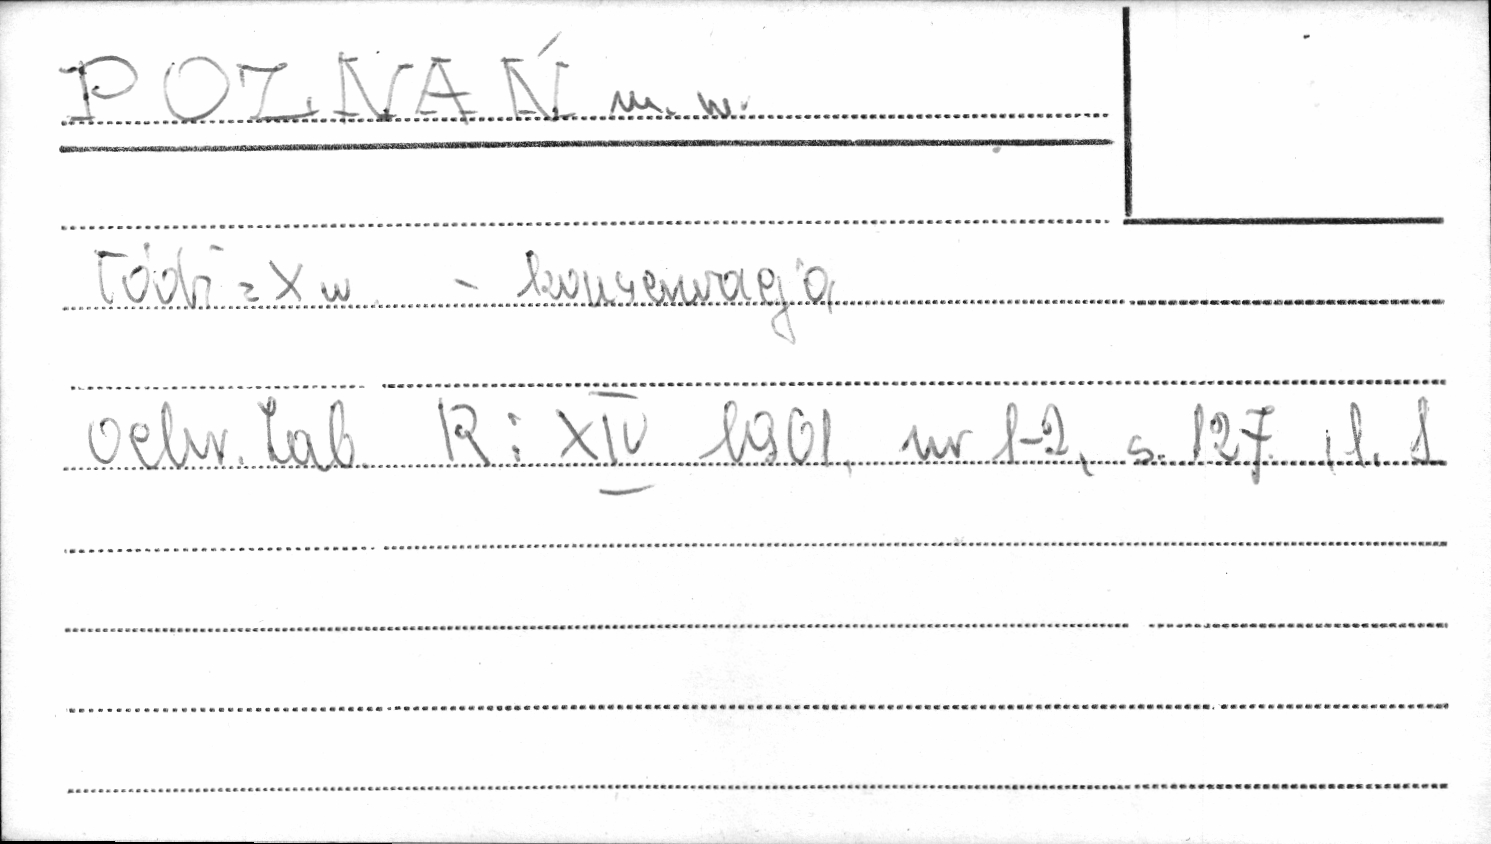 POZNAŃ m. w.
Łódź z X w. - konserwacja
Ochr. Zab. R: XIV 1961, nr 1-2, s. 127, il. 1